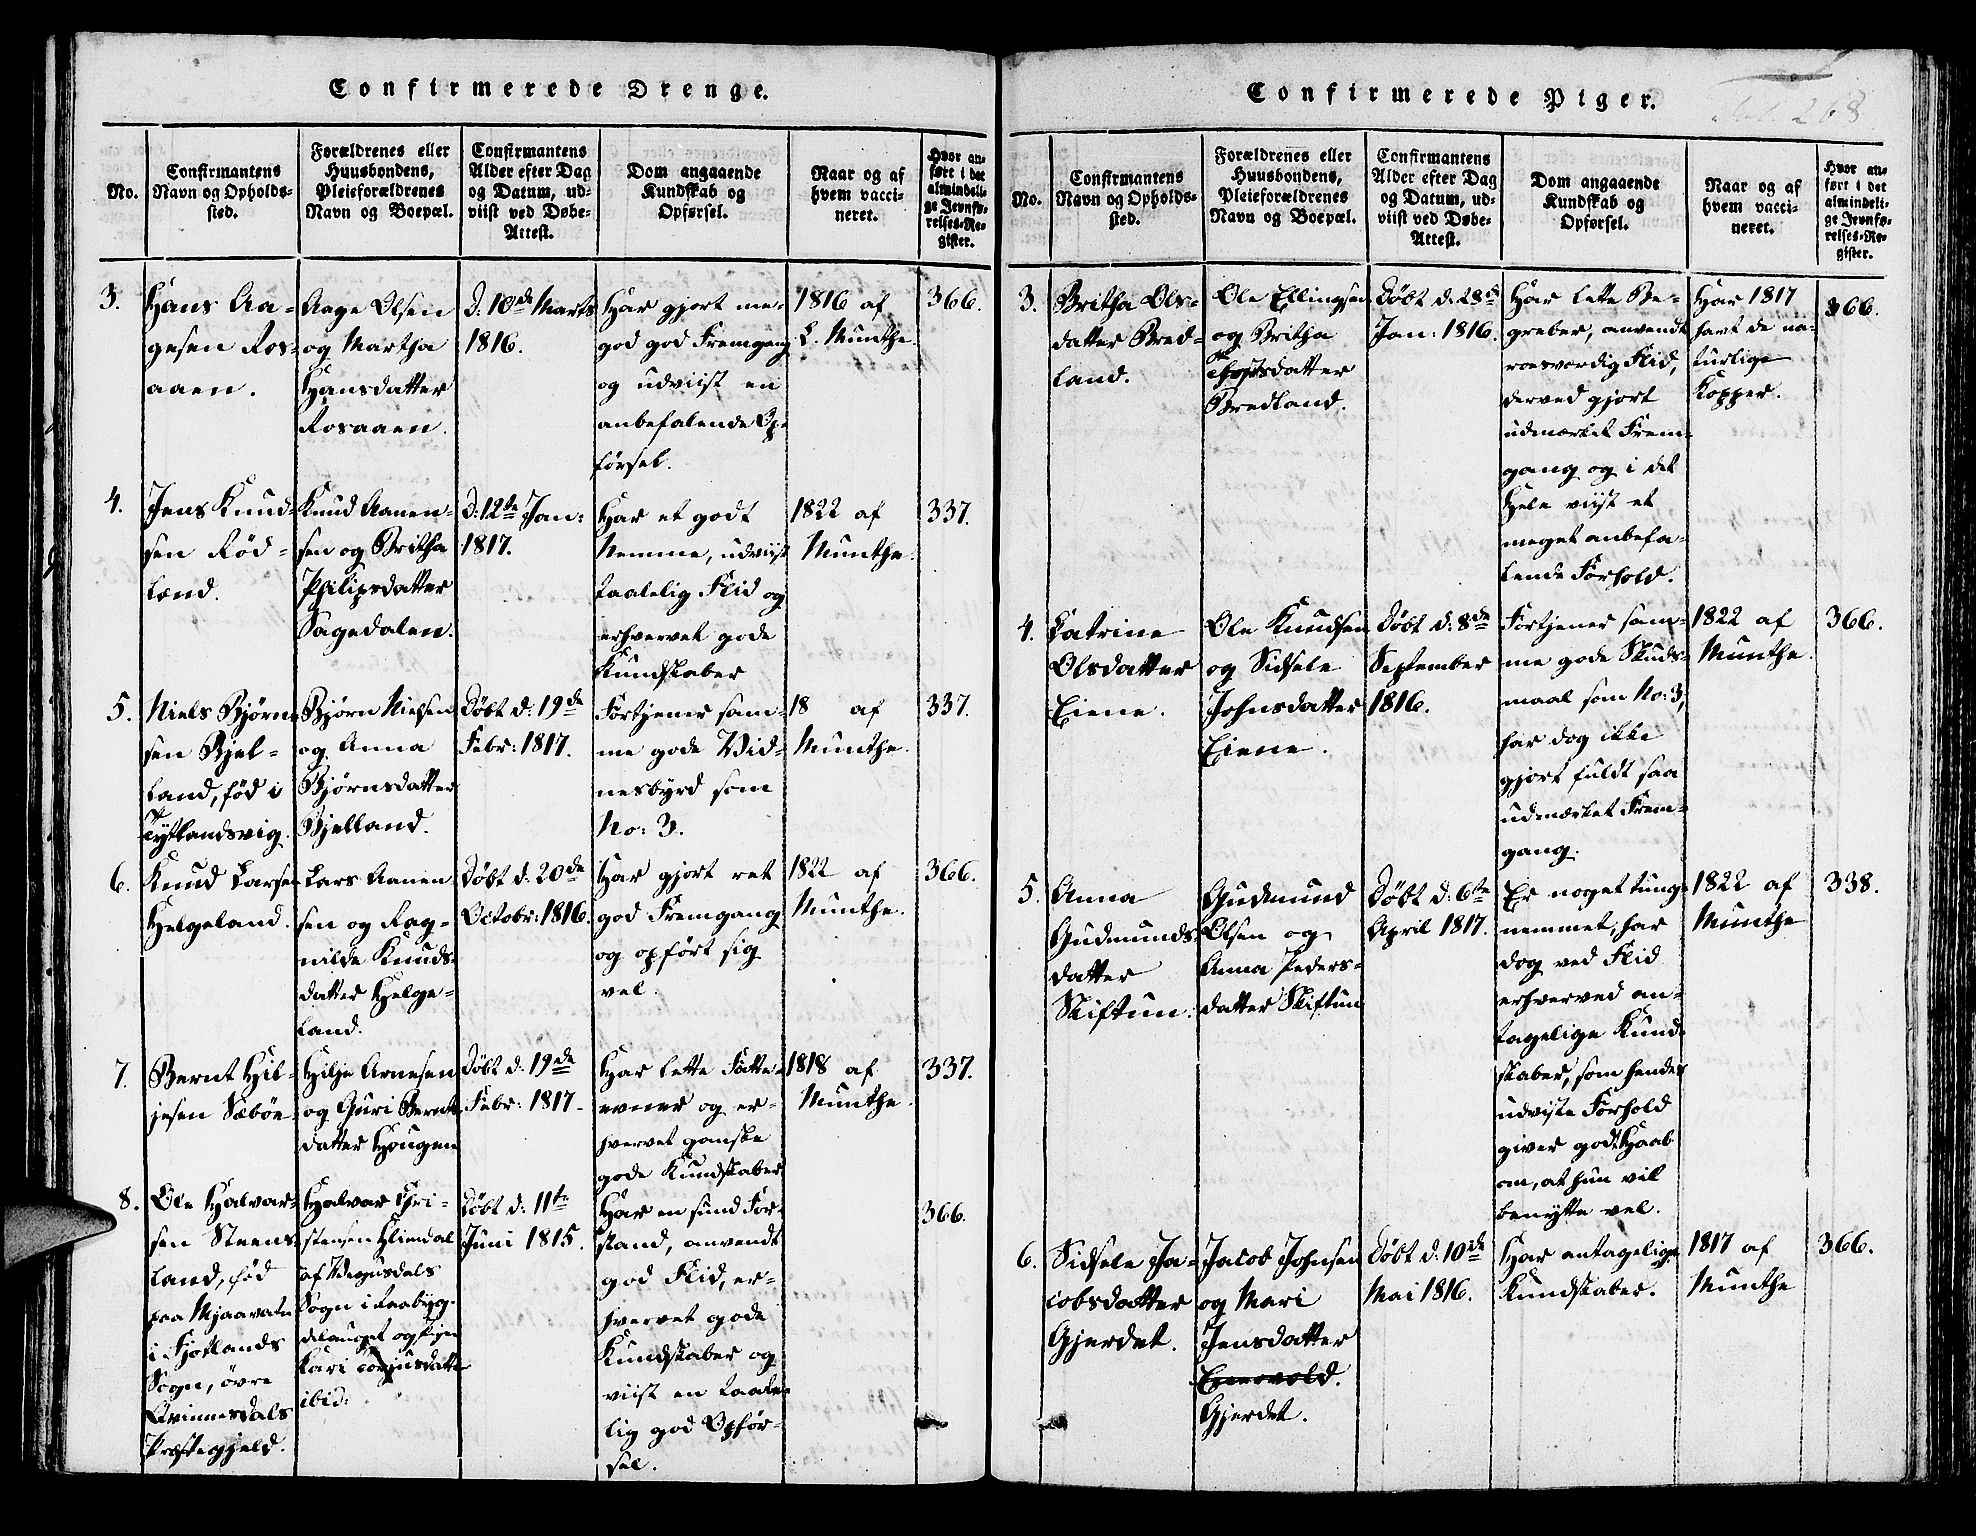 Confirmerede Drenge.
No.
Confirmantens
Navn og Opholds-
sted.
Forældrenes eller
Huusbondens,
Pleieforældrenes
Navn og Boepæl.
Confirmantens
Alder efter Dag
og Datum, ud-
viist ved Døbe-
Attest.
Dom angaaende
Kundskab og
Opførsel.
Naar og af
hvem vacci-
neret.
Hvor an-
ført i det
almindeli-
ge Jevnfø-
relses-Re-
gister.
3.
Hans Aa-
gesen Ros-
aaen.
Aage Olsen
og Martha
Hansdatter
Rosaaen.
D. 10de Marts
1816.
Har gjort me-
god god Fremgang
og udviist en
anbefalende Op-
førsel.
1816 af
L. Munthe.
366.
4.
Jens Knud-
sen Rød-
land.
Knud Aanen-
sen og Britha
Philipsdatter
Sagedalen.
D: 12te Jan:
1817.
Har et godt
Nemme, udviist
taalelig Flid og
erhvervet gode
Kundskaber
1822 af
Munthe.
337.
5.
Niels Bjørn-
sen Bjel-
land, fød i
Tytlandsvig.
Bjørn Nielsen
og Anna
Bjørnsdatter
Bjelland.
Døbt d: 19de
Febr: 1817.
Fortjener sam-
me gode Vid-
nesbyrd som
No: 3.
18 af
Munthe.
337.
6.
Knud Larsen
Helgeland.
Lars Aanen-
sen og Rag-
nilde Knuds-
datter Helge-
land.
Døbt d: 20de
Octobr: 1816.
Har gjort ret
god Fremgang
og opført sig
vel.
1822 af
Munthe.
366.
7.
Bernt Hil-
jesen Sæbøe
Hilje Arnesen
og Guri Bernts-
datter Hougen
Døbt d: 19de
Febr: 1817.
Har lette Fatte-
evner og er-
hvervet ganske
gode Kundskaber
1818 af
Munthe.
337.
8.
Ole Halvar-
sen Steens-
land, fød
paa Mjaavatn
i Fjotlands
Sogn, øvre
Qvinnesdals
Præstegjeld.
Halvar Chri-
stensen
af
Sogn i Raabyg-
delauget og Pigen
Kari Torjusdatter
ibid:
Døbt d: 11te
Juni 1815.
Har en sund For-
stand, anvendt
god Flid, er-
hvervet gode
Kundskaber og
viist en taale-
lig god Opfør-
sel.
366.
Confirmerede Piger.
Fol. 268
No.
Confirmantens
Navn og Opholds-
sted.
Forældrenes eller
Huusbondens,
Pleieforældrenes
Navn og Boepæl.
Confirmantens
Alder efter Dag
og Datum, ud-
viist ved Døbe-
Attest.
Dom angaaende
Kundskab og
Opførsel.
Naar og af
hvem vacci-
neret.
Hvor an-
ført i det
almindeli-
ge Jevnfø-
relses-Re-
gister.
3.
Britha Ols-
datter Bred-
land.
Ole Ellingsen
og Britha
Bredland.
Døbt d: 28de
Jan: 1816.
Har lette Be-
greber, anvendt
roesværdig Flid,
derved gjort
udmærket Frem-
gang og i det
Hele viist et
meget anbefa-
lende Forhold.
Har 1817
havt de na-
turlige
Kopper.
366.
4.
Catrine
Olsdatter
Eiene.
Ole Knudsen
og Sidsele
Johnsdatter
Eiene.
Døbt d: 8de
September
1816.
Fortjener sam-
me gode Skuds-
maal som No: 3,
har dog ikke
gjort fuldt saa
udmærket Frem-
gang.
1822 af
Munthe.
366.
5.
Anna
Gudmunds-
datter
Skiftun.
Gudmund
Olsen og
Anna Peders-
datter Skiftun
Døbt d: 6te
April 1817.
Er noget tung-
nemmet, har
dog ved Flid
erhverved an-
tagelige Kund-
skaber, som hendes
udviste Forhold
giver godt Haab
om, at hun vil
benytte vel.
1822 af
Munthe
338.
6.
Sidsele Ja-
cobsdatter
Gjerdet.
Jacob Johnsen
og Mari
Jensdatter
Gjerdet.
Døbt d: 10de
Mai 1816.
Har antagelige
Kundskaber.
1817 af
Munthe
366.